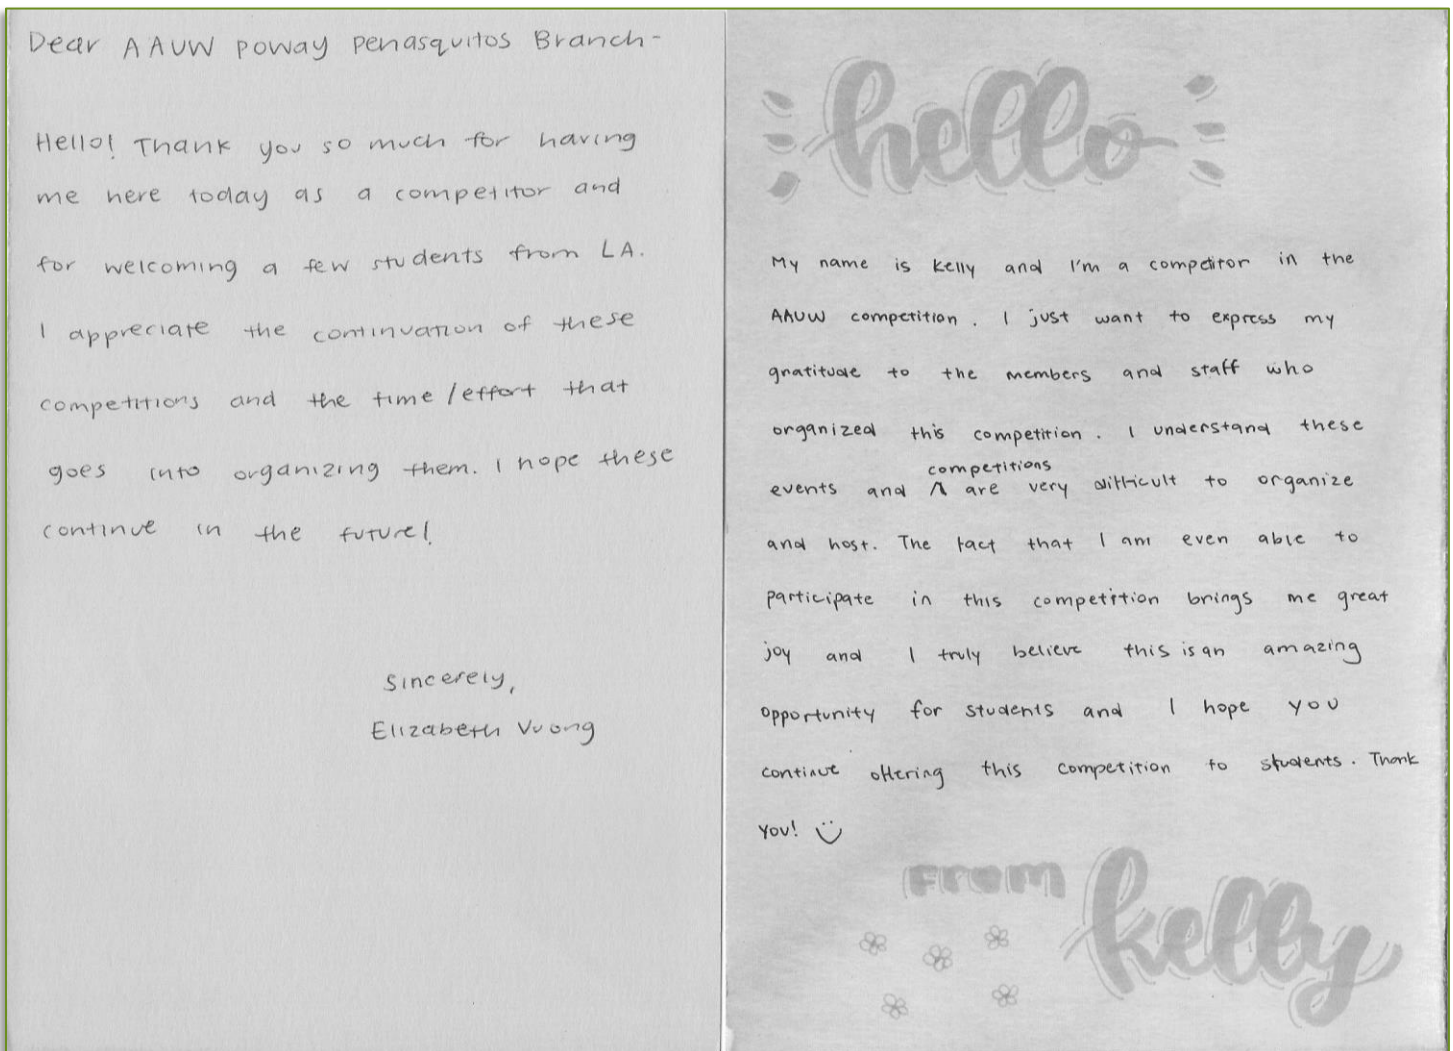 Dear AAUW poway penasquitos Branch-
Hello! Thank you so much for having
me here today as a competitor and
for welcoming a few students from LA.
I appreciate the continuation of these
competitions and the time/effort that
goes into organizing them. I hope these
continue in the future!
Sincerely,
Elizabeth Vuong
hello
My name is Kelly and I'm a competitor in the
AAUW competition. I just want to express my
gratitude to the members and staff who
organized this competition. I understand these
competitions
events and ^ are very difficult to organize
and host. The fact that I am even able to
participate in this competition brings me great
joy and I truly believe this is an amazing
opportunity for students and I hope you
continue offering this competition to students. Thank
you! :)
FROM
kelly